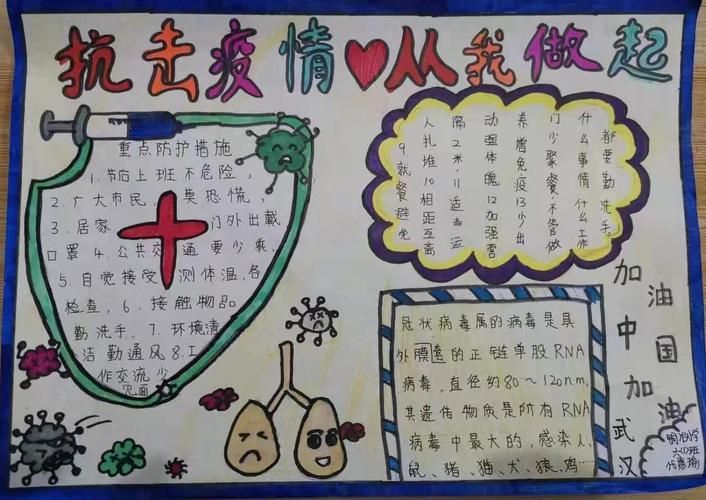 抗击疫情❤从我做起
重点防护措施
1.节后上班不危险,
2.广大市民,莫恐慌,
3.居家门外出戴
口罩 4.公共交通要少乘,
5.自觉接受测体温,各
检查,6.接触物品
勤洗手,7.环境清
洁勤通风8.工
作交流少
见面
9就餐避免
人扎堆10相距互离
隔2米,11适当运
动强体魄12加强营
养增免疫13少出
门少聚餐,不管做
什么事情什么工作
都要勤洗手。
冠状病毒属的病毒是具
外膜套的正链单股RNA
病毒,直径约80~120nm,
其遗传物质是所有RNA
病毒中最大的,感染人、
鼠、猪、猫、犬、狼、鸡……
加油
中国
加油
武汉
小学